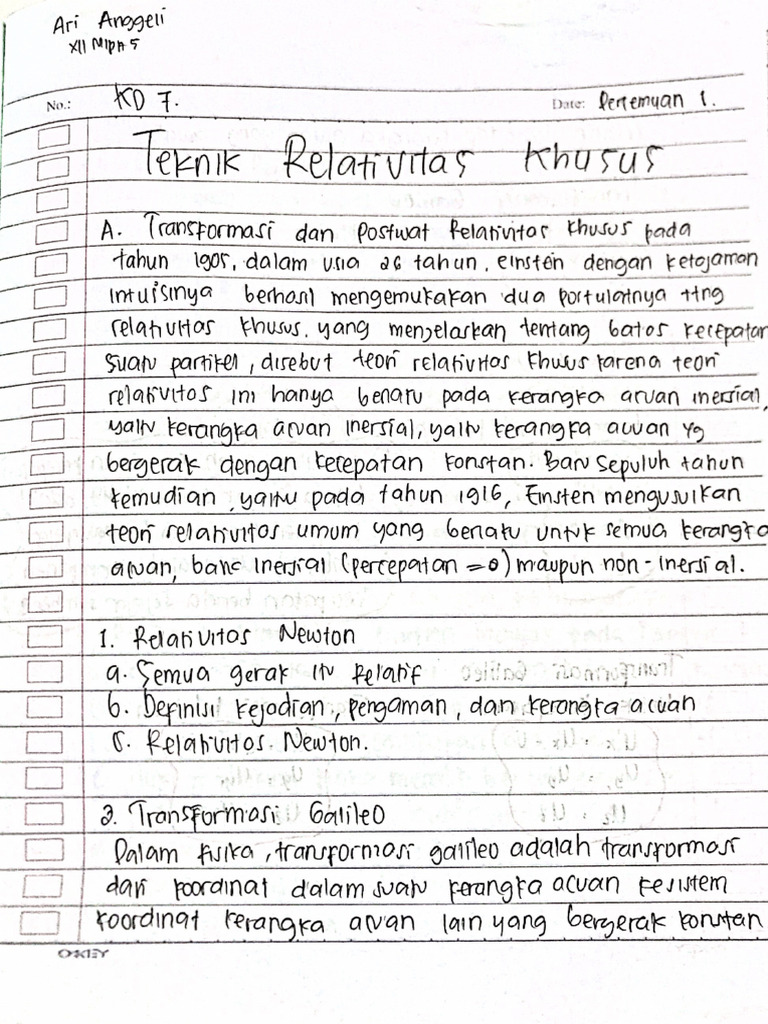 Ari Anggeli
XII MIPA 5
No.: KD 7. Date: Pertemuan 1.
Teknik Relativitas Khusus
A. Transformasi dan Postwat Relativitas Khusus pada
tahun 1905, dalam usia 26 tahun, einsten dengan ketajaman
intuisinya berhasil mengemukakan dua portulatnya ttng
relativitas khusus. yang menjelaskan tentang batas kecepatan
suatu partikel, disebut teori relativitas khusus karena teori
relativitas ini hanya berlaku pada kerangka acuan inersial,
yaitu kerangka acuan inersial, yaitu kerangka acuan yg
bergerak dengan kecepatan konstan. Baru sepuluh tahun
kemudian, yaitu pada tahun 1916, Einsten mengusulkan
teori relativitas umum yang berlaku untuk semua kerangka
acuan, baik inersial (percepatan = 0) maupun non-inersial.
1. Relativitas Newton
a. Semua gerak itu Relatif
b. Definisi kejadian, pengaman, dan kerangka acuan
c. Relativitas. Newton.
2. Transformasi Galileo
Dalam fisika, transformasi galileo adalah transformasi
dari koordinat dalam suatu kerangka acuan ke sistem
koordinat kerangka acuan lain yang bergerak konstan
OKEY